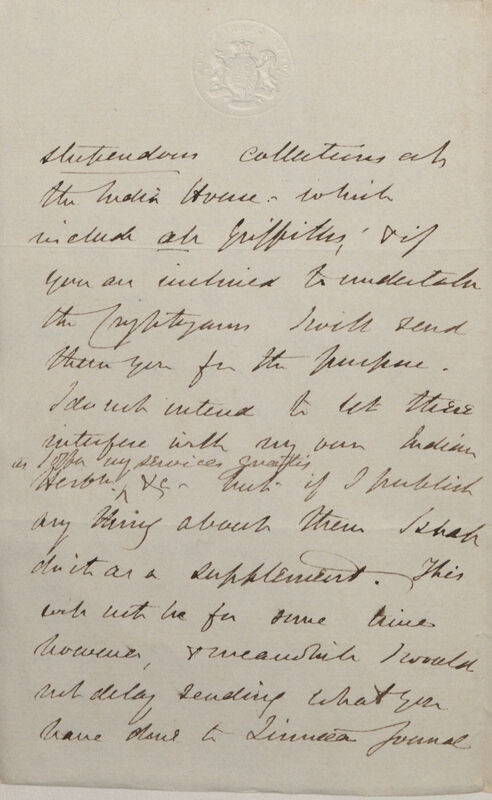 stupendous collections at
the India House - which
include all Griffiths', & if
you are inclined to undertake
the Cryptogams I will send
them you for the purpose.
I do not intend to let these
interfere with my own Indian
as I offer my services gratis
Herbm. ^ &c - but if I publish
any thing about them I shall
do it as a supplement. This
will not be for some time
however, & meanwhile I would
not delay sending what you
have done to Linnean Journal